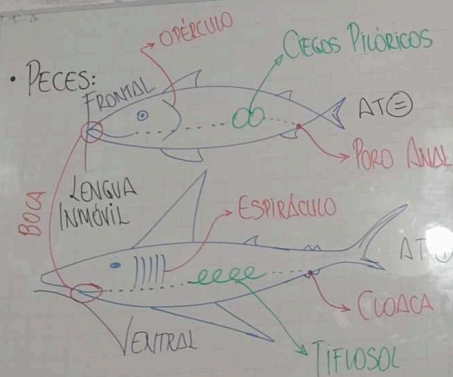 OPÉRCULO
CIEGOS PILÓRICOS
• PECES:
FRONTAL
AT
PORO ANAL
LENGUA
INMÓVIL
BOCA
ESPIRÁCULO
AT
CLOACA
VENTRAL
TIFLOSOL